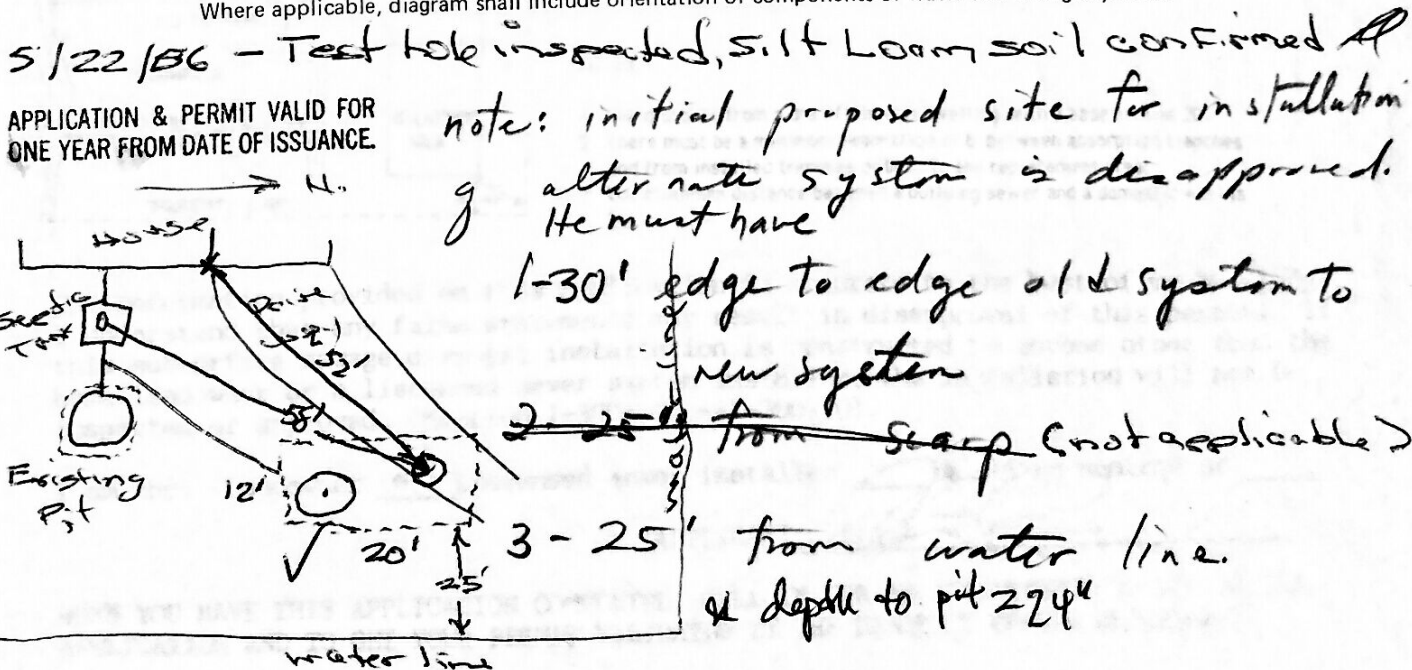 Where applicable, diagram shall include orientation of components of
5/22/86 - Test hole inspected, silt Loam soil confirmed
APPLICATION & PERMIT VALID FOR
ONE YEAR FROM DATE OF ISSUANCE.
note: initial proposed site for installation
of alternate system is disapproved.
He must have
→ N.
House
1-30' edge to edge old system to
new system
2 - 25' from scarp (not applicable)
3 - 25' from water line.
depth to pit 224"
52'
55'
Existing
Pit
12'
20'
25'
water line